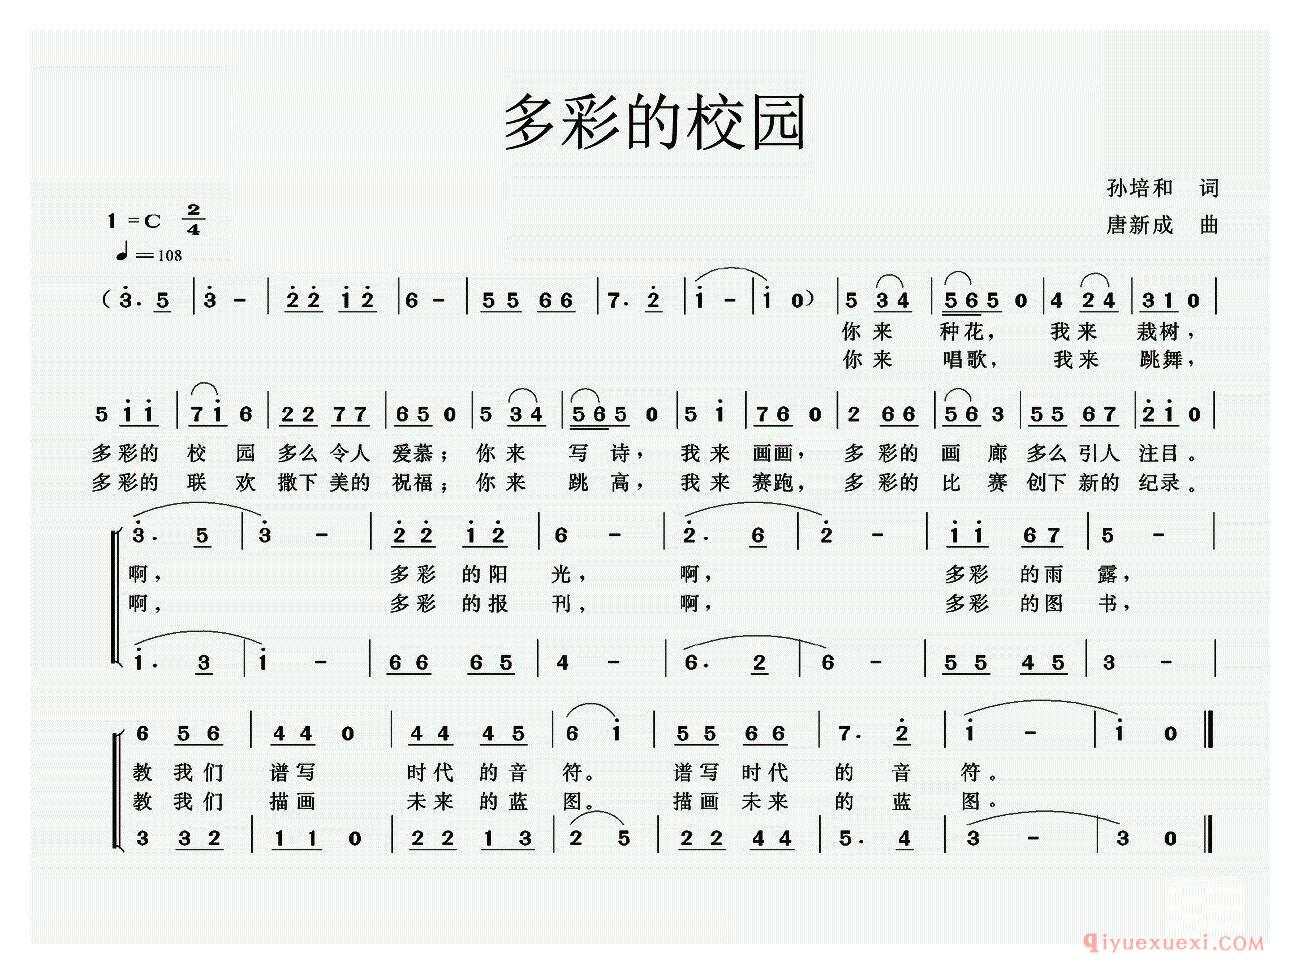 多彩的校园
孙培和 词
1=C 2/4
唐新成 曲
♩=108
(3̇. 5 | 3̇ - | 2̇ 2̇ 1̇ 2̇ | 6 - | 5 5 6 6 | 7. 2̇ | 1̇ - | 1̇ 0) | 5 3 4 | 5 6 5 0 | 4 2 4 | 3 1 0 |
你来 种花， 我来 栽树，
你来 唱歌， 我来 跳舞，
5 1̇ 1̇ | 7 1̇ 6 | 2 2 7 7 | 6 5 0 | 5 3 4 | 5 6 5 0 | 5 1̇ | 7 6 0 | 2 6 6 | 5 6 3 | 5 5 6 7 | 2̇ 1̇ 0 |
多彩的 校 园 多么 令人 爱慕； 你来 写 诗， 我来 画画， 多 彩的 画 廊 多么 引人 注目。
多彩的 联 欢 撒下 美的 祝福； 你来 跳 高， 我来 赛跑， 多 彩的 比 赛 创下 新的 纪录。
3̇. 5 | 3̇ - | 2̇ 2̇ 1̇ 2̇ | 6 - | 2̇. 6 | 2̇ - | 1̇ 1̇ 6 7 | 5 - |
啊， 多彩 的阳 光， 啊， 多彩 的雨 露，
啊， 多彩 的报 刊， 啊， 多彩 的图 书，
1̇. 3 | 1̇ - | 6 6 6 5 | 4 - | 6. 2 | 6 - | 5 5 4 5 | 3 - |
6 5 6 | 4 4 0 | 4 4 4 5 | 6 1̇ | 5 5 6 6 | 7. 2̇ | 1̇ - | 1̇ 0 ‖
教我们 谱写 时代 的音 符。 谱写 时代 的 音 符。
教我们 描画 未来 的蓝 图。 描画 未来 的 蓝 图。
3 3 2 | 1 1 0 | 2 2 1 3 | 2 5 | 2 2 4 4 | 5. 4 | 3 - | 3 0 ‖
qiyuexuexi.COM